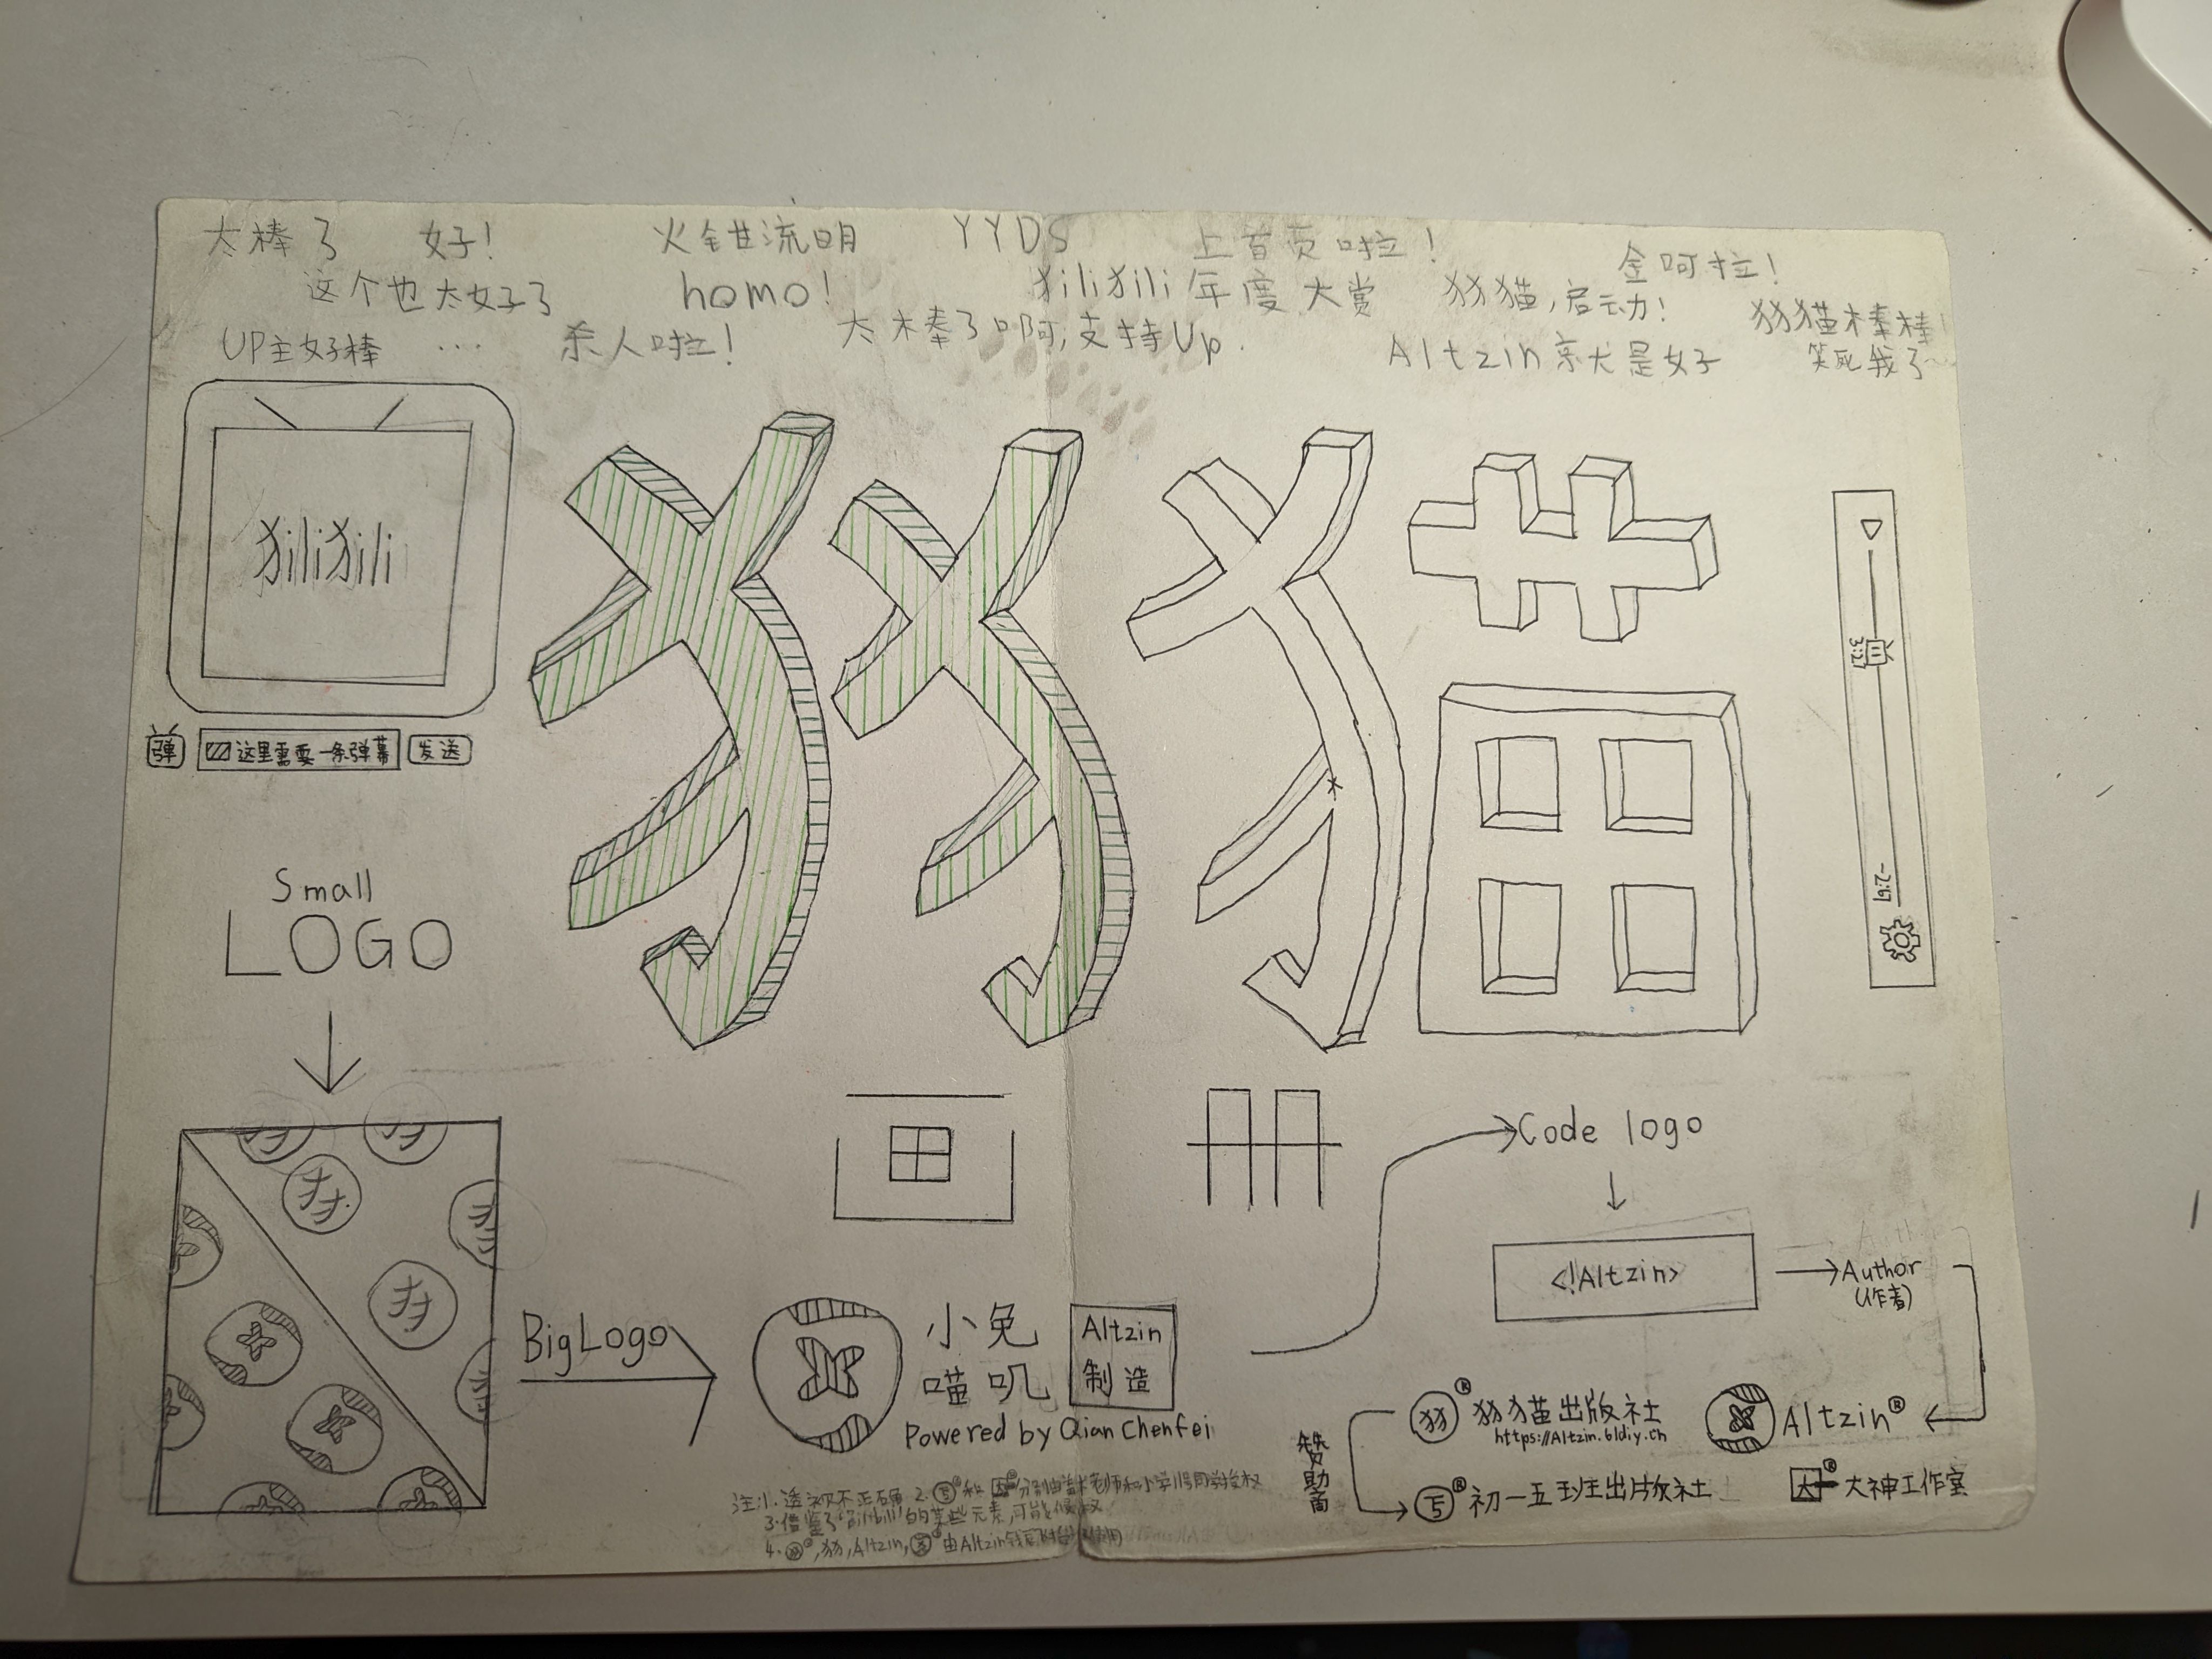 太棒了 好! 火钳流明 YYDS 上首页啦! 金呵拉!
这个也太好了 homo! 犭ili犭ili年度大赏 犭犭猫,启动! 犭犭猫棒棒
UP主好棒 ... 杀人啦! 太棒了啊,支持Up. Altzin亲犬是好 笑死我了~
犭ili犭ili
犭犭猫
3:21
-2:57
弹 这里需要一条弹幕 发送
Small
LOGO
画册
Code logo
<!Altzin>
Author
(作者)
犭犭
犭犭
Big Logo
小兔
喵叽
Altzin
制造
Powered by Qian Chenfei
犭犭® 犭犭猫出版社
https://Altzin.61diy.cn
Altzin®
赞助商
初一五班出版社
大® 大神工作室
注:1.透视不正确 2.
3.借鉴了"bilibili"的某些元素,可能侵权
4.